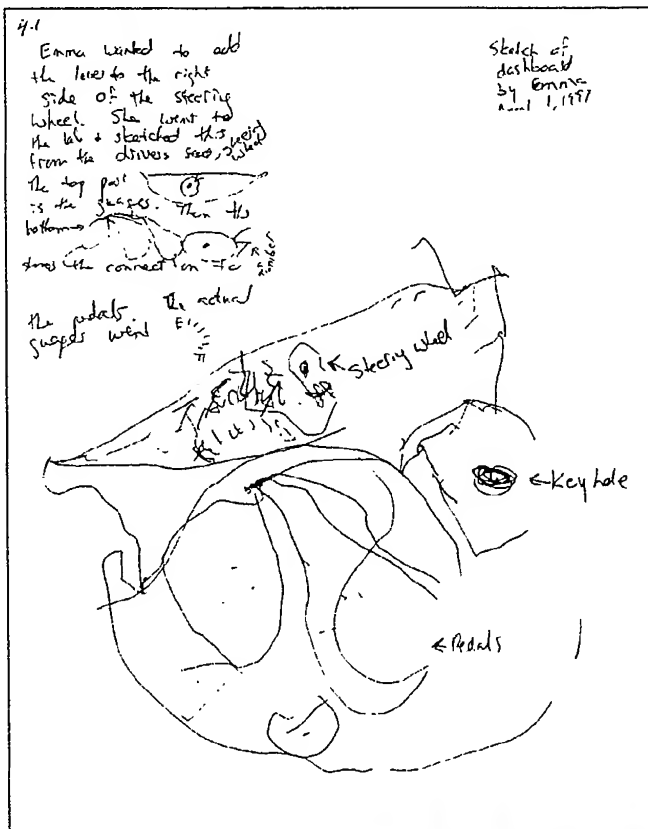 Emma wanted to add
the lever to the right
side of the steering
wheel. She went to
the lab & sketched this
from the drivers seat, steering
wheel
The top part
is the guages. Then the
bottom
shows the connection to
the pedals. The actual
guages went
Sketch of
dashboard
by Emma
April 1, 1997
← Steering wheel
← Key hole
← Pedals